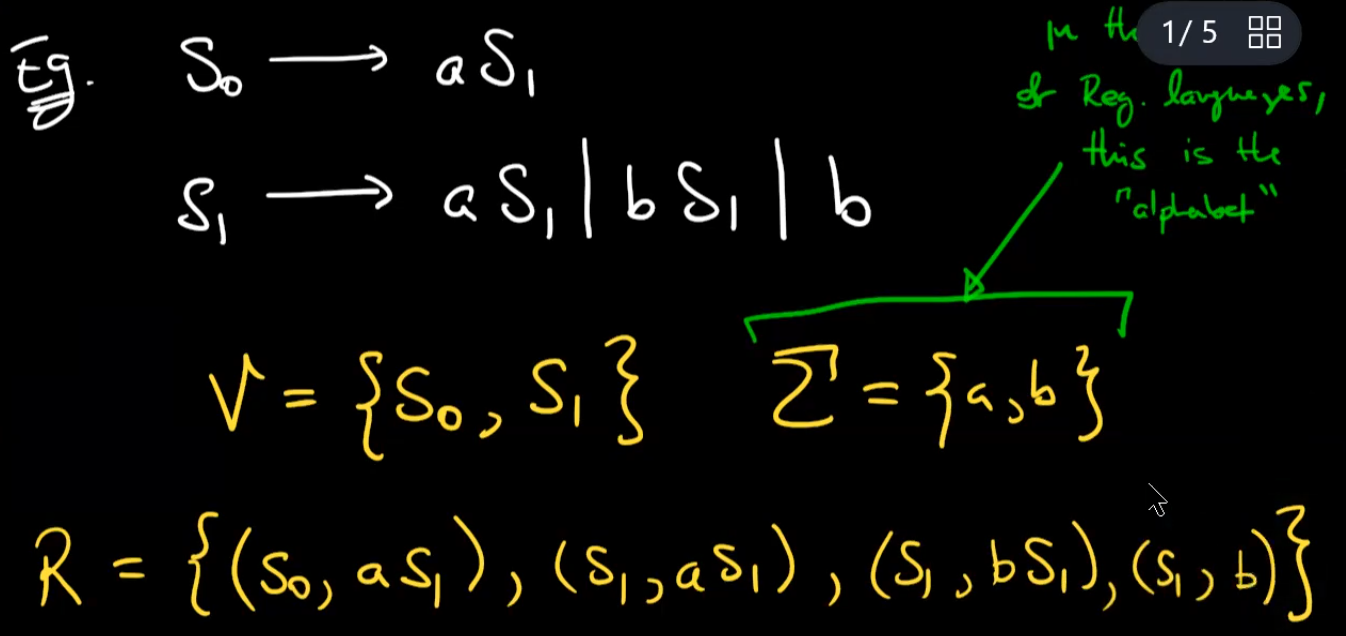 Eg. S₀ → aS₁
S₁ → aS₁ | bS₁ | b
In th
of Reg. languages,
this is the
"alphabet"
1/5
V = {S₀, S₁} Σ = {a, b}
R = {(S₀, aS₁), (S₁, aS₁), (S₁, bS₁), (S₁, b)}